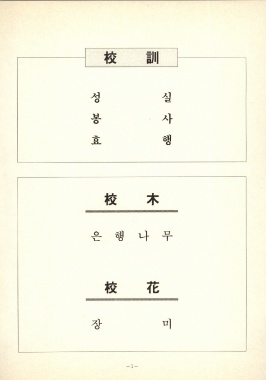 校 訓
성 실
봉 사
효 행
校 木
은 행 나 무
校 花
장 미
－1－